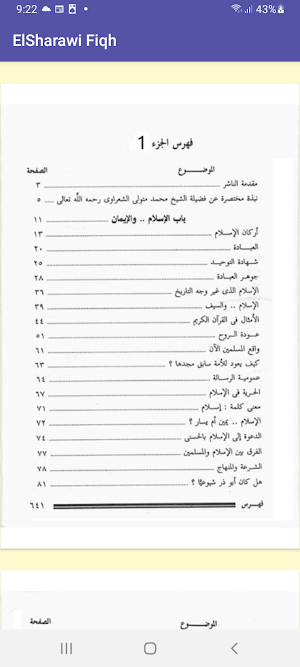 9:22 43%
ElSharawi Fiqh
فهرس الجزء 1
الموضـــوع الصفحة
مقدمة الناشر ٣
نبذة مختصرة عن فضيلة الشيخ محمد متولى الشعراوى رحمه الله تعالى ٥
باب الإسلام .. والإيمان ١١
أركان الإسـلام ١٣
العبـــادة ٢٠
شـهادة التوحيـد ٢٥
جوهـر العبـادة ٢٨
الإسلام الذى غير وجه التاريخ ٣٦
الإسـلام .. والسيف ٣٩
الأمثال فى القرآن الكريم ٤٤
عــودة الـروح ٥١
واقع المسلمين الآن ٦١
كيف يعود للأمة سابق مجدها ؟ ٦٣
عموميـة الرسـالة ٦٤
الحرية فى الإسلام ٦٧
معنى كلمة : إسـلام ٧١
الإسلام .. يمين أم يسار ؟ ٧٢
الدعوة إلى الإسلام بالحسنى ٧٤
الفرق بين الإسلام والمسلمين ٧٧
الشـرعة والمنهاج ٧٨
هل كان أبو ذر شيوعيًّا ؟ ٨١
فهــرس ٦٤١
الموضـــوع الصفحة